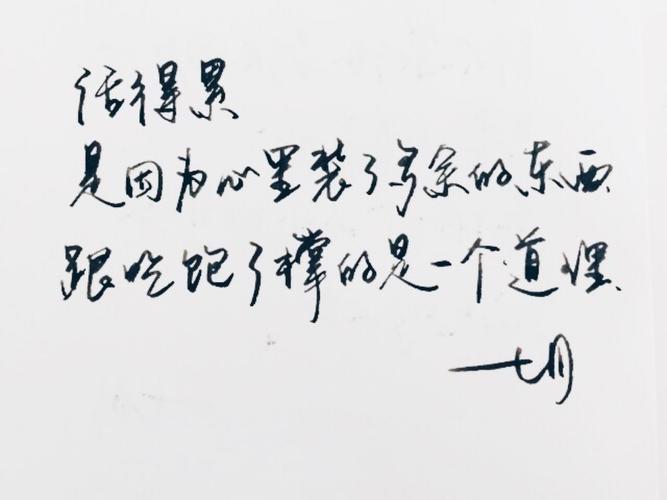 活得累
是因为心里装了多余的东西
跟吃饱了撑的是一个道理
七月